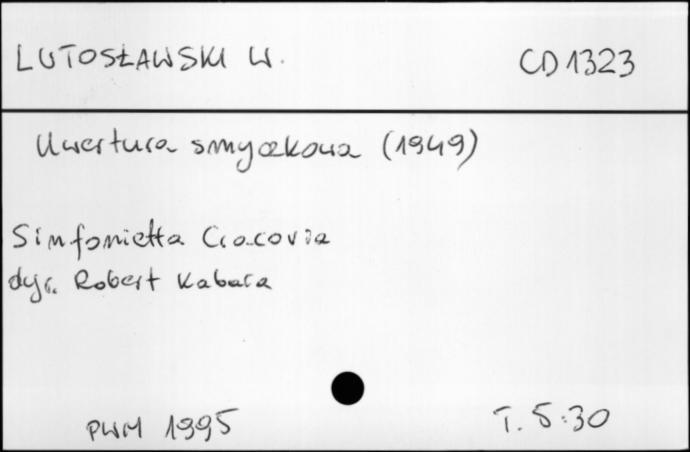 LUTOSŁAWSKI W.
CD 1323
Uwertura smyczkowa (1949)
Sinfonietta Cracovia
dyr. Robert Kabara
PWM 1995
T. 5:30